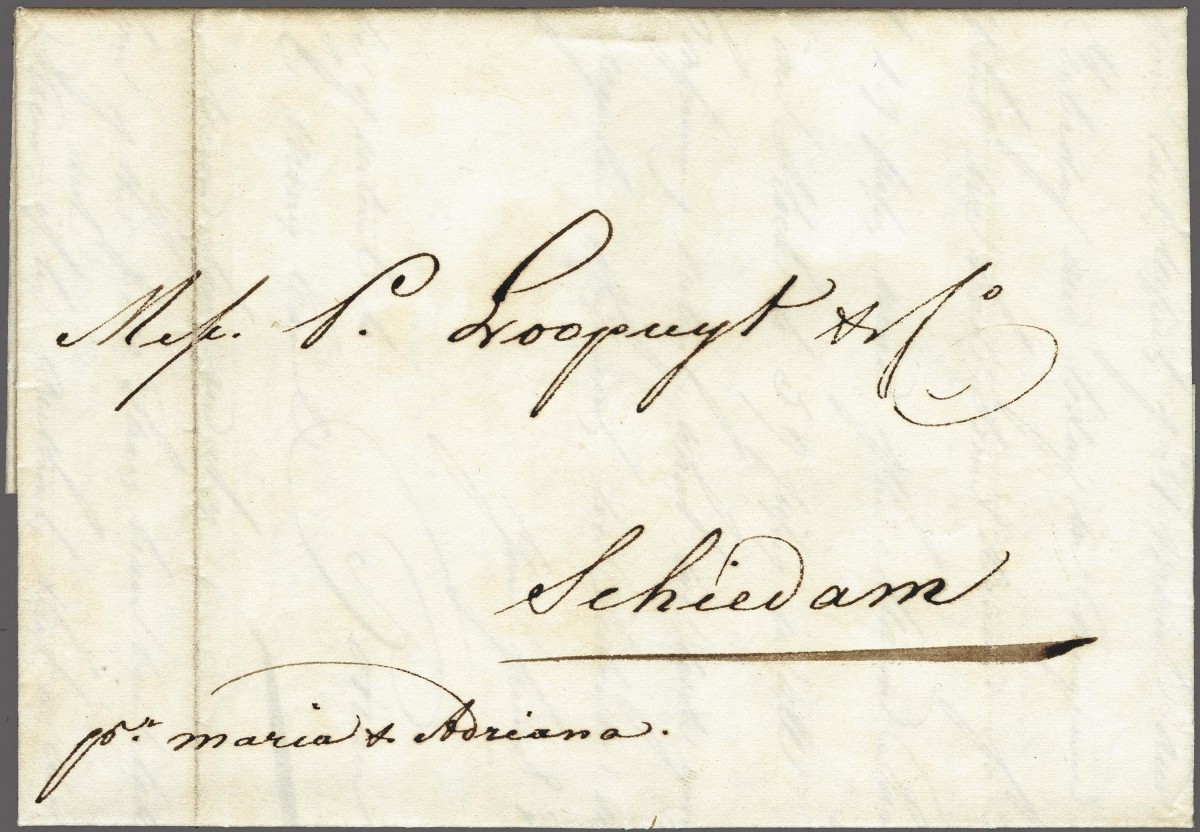 Mess. P. Loopuyt & Co
Schiedam
pr. maria & Adriana.